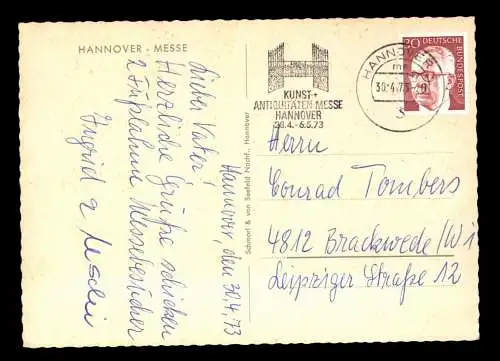 HANNOVER - MESSE
Hannover, den 30.4.73
Lieber Vater!
Herzliche Grüße schicken
2 Messebesucher
Ingrid & Uschi
Schmorl & von Seefeld Nachf., Hannover
KUNST- +
ANTIQUITÄTEN-MESSE
HANNOVER
28.4.-6.5.73
HANNOVER
30.4.73
20
DEUTSCHE
BUNDESPOST
Herrn
Conrad Tombers
4812 Brackwede/Wi
Leipziger Straße 12